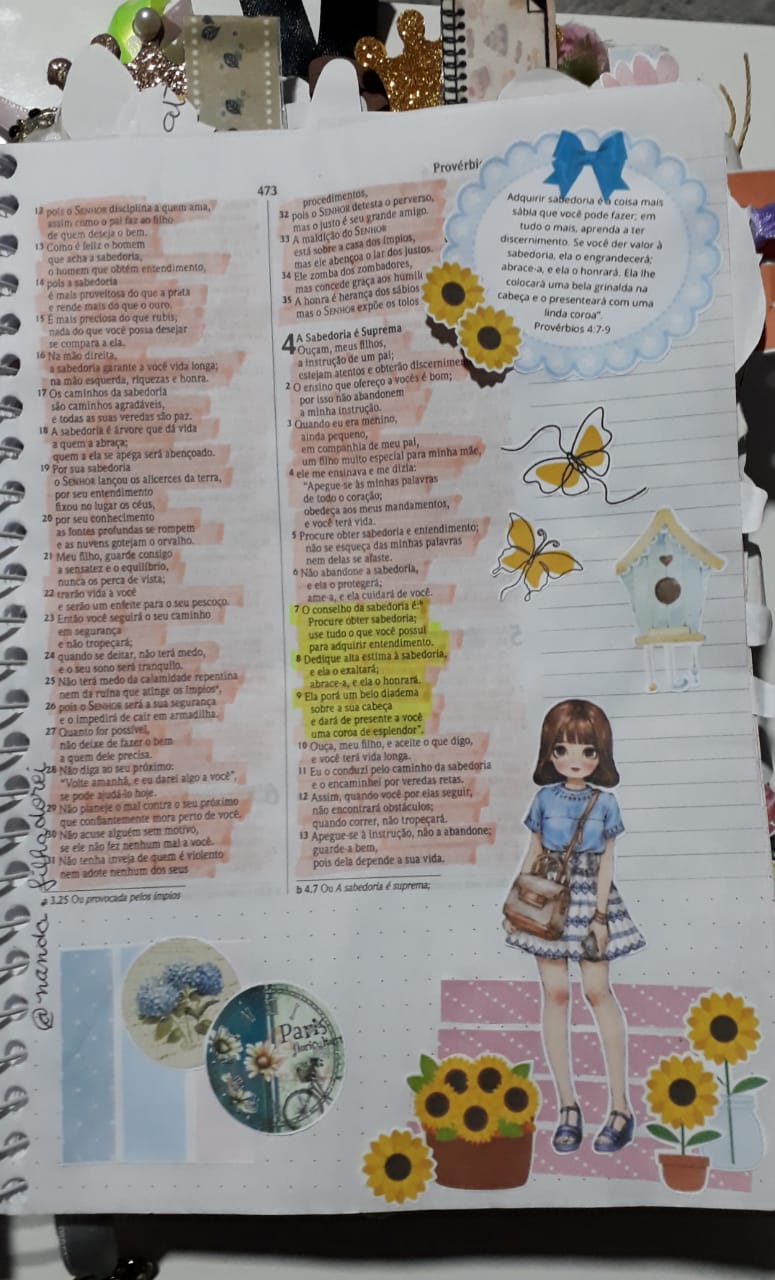 473
Provérbi
12 pois o SENHOR disciplina a quem ama,
assim como o pai faz ao filho
de quem deseja o bem.
13 Como é feliz o homem
que acha a sabedoria,
o homem que obtém entendimento,
14 pois a sabedoria
é mais proveitosa do que a prata
e rende mais do que o ouro.
15 É mais preciosa do que rubis;
nada do que você possa desejar
se compara a ela.
16 Na mão direita,
a sabedoria garante a você vida longa;
na mão esquerda, riquezas e honra.
17 Os caminhos da sabedoria
são caminhos agradáveis,
e todas as suas veredas são paz.
18 A sabedoria é árvore que dá vida
a quem a abraça;
quem a ela se apega será abençoado.
19 Por sua sabedoria
o SENHOR lançou os alicerces da terra,
por seu entendimento
fixou no lugar os céus,
20 por seu conhecimento
as fontes profundas se rompem
e as nuvens gotejam o orvalho.
21 Meu filho, guarde consigo
a sensatez e o equilíbrio,
nunca os perca de vista;
22 trarão vida a você
e serão um enfeite para o seu pescoço.
23 Então você seguirá o seu caminho
em segurança
e não tropeçará;
24 quando se deitar, não terá medo,
e o seu sono será tranquilo.
25 Não terá medo da calamidade repentina
nem da ruína que atinge os ímpios,
26 pois o SENHOR será a sua segurança
e o impedirá de cair em armadilha.
27 Quanto for possível,
não deixe de fazer o bem
a quem dele precisa.
28 Não diga ao seu próximo:
"Volte amanhã, e eu darei algo a você",
se pode ajudá-lo hoje.
29 Não planeje o mal contra o seu próximo
que confiantemente mora perto de você.
30 Não acuse alguém sem motivo,
se ele não fez nenhum mal a você.
31 Não tenha inveja de quem é violento
nem adote nenhum dos seus
a 3.25 Ou provocada pelos ímpios
procedimentos,
32 pois o SENHOR detesta o perverso,
mas o justo é seu grande amigo.
33 A maldição do SENHOR
está sobre a casa dos ímpios,
mas ele abençoa o lar dos justos.
34 Ele zomba dos zombadores,
mas concede graça aos humil
35 A honra é herança dos sábios
mas o SENHOR expõe os tolos
A Sabedoria é Suprema
4 Ouçam, meus filhos,
a instrução de um pai;
estejam atentos e obterão discernime
2 O ensino que ofereço a vocês é bom;
por isso não abandonem
a minha instrução.
3 Quando eu era menino,
ainda pequeno,
em companhia de meu pai,
um filho muito especial para minha mãe,
4 ele me ensinava e me dizia:
"Apegue-se às minhas palavras
de todo o coração;
obedeça aos meus mandamentos,
e você terá vida.
5 Procure obter sabedoria e entendimento;
não se esqueça das minhas palavras
nem delas se afaste.
6 Não abandone a sabedoria,
e ela o protegerá;
ame-a, e ela cuidará de você.
7 O conselho da sabedoria é:b
Procure obter sabedoria;
use tudo o que você possui
para adquirir entendimento.
8 Dedique alta estima à sabedoria,
e ela o exaltará;
abrace-a, e ela o honrará.
9 Ela porá um belo diadema
sobre a sua cabeça
e dará de presente a você
uma coroa de esplendor".
10 Ouça, meu filho, e aceite o que digo,
e você terá vida longa.
11 Eu o conduzi pelo caminho da sabedoria
e o encaminhei por veredas retas.
12 Assim, quando você por elas seguir,
não encontrará obstáculos;
quando correr, não tropeçará.
13 Apegue-se à instrução, não a abandone;
guarde-a bem,
pois dela depende a sua vida.
b 4.7 Ou A sabedoria é suprema;
Adquirir sabedoria é a coisa mais
sábia que você pode fazer; em
tudo o mais, aprenda a ter
discernimento. Se você der valor à
sabedoria, ela o engrandecerá;
abrace-a, e ela o honrará. Ela lhe
colocará uma bela grinalda na
cabeça e o presenteará com uma
linda coroa".
Provérbios 4:7-9
@nanda.filhadorei
Paris